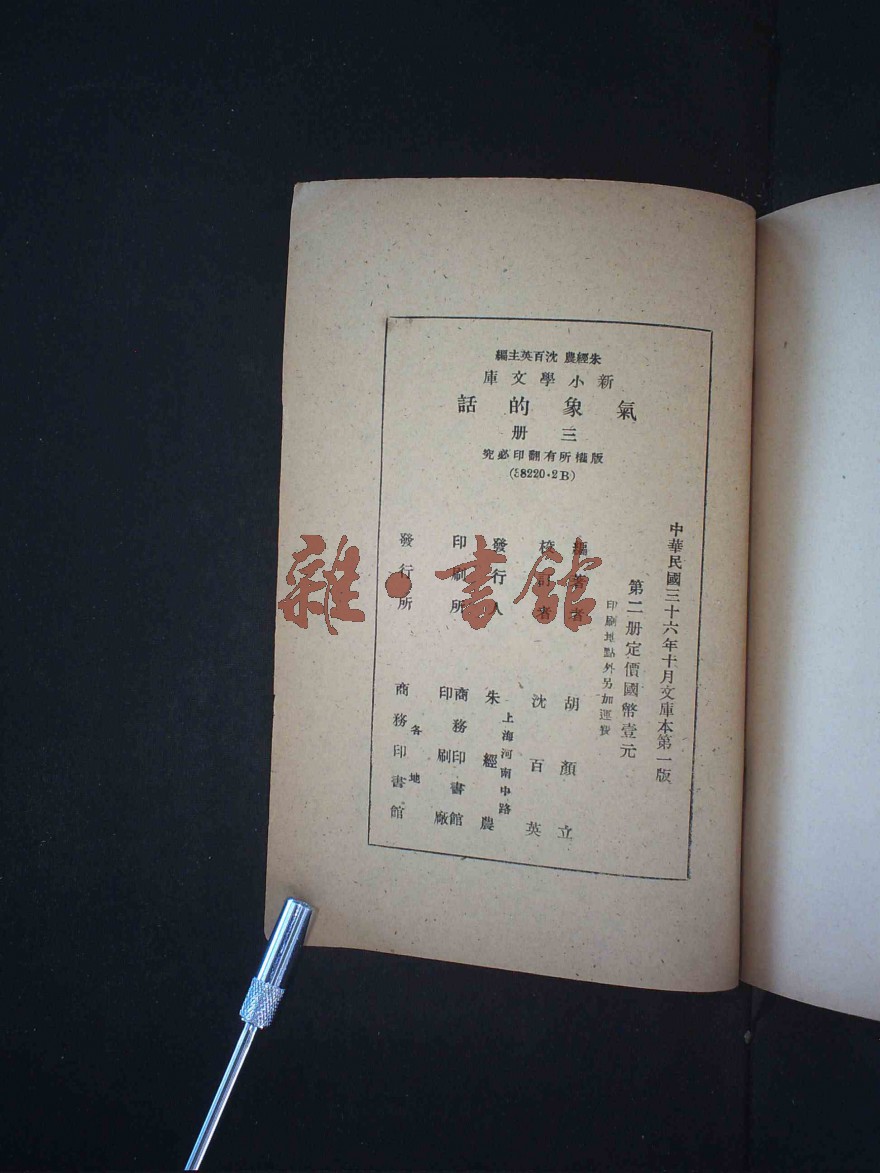 朱經農 沈百英主編
新小學文庫
氣象的話
三册
版權所有翻印必究
(58220·2B)
中華民國三十六年十月文庫本第一版
第二册定價國幣壹元
印刷地點外另加運費
編著者 胡顏立
校訂者 沈百英
發行人 朱經農
上海河南中路
印刷所 商務印書館
印刷廠
發行所 商務印書館
各地
雜·書館